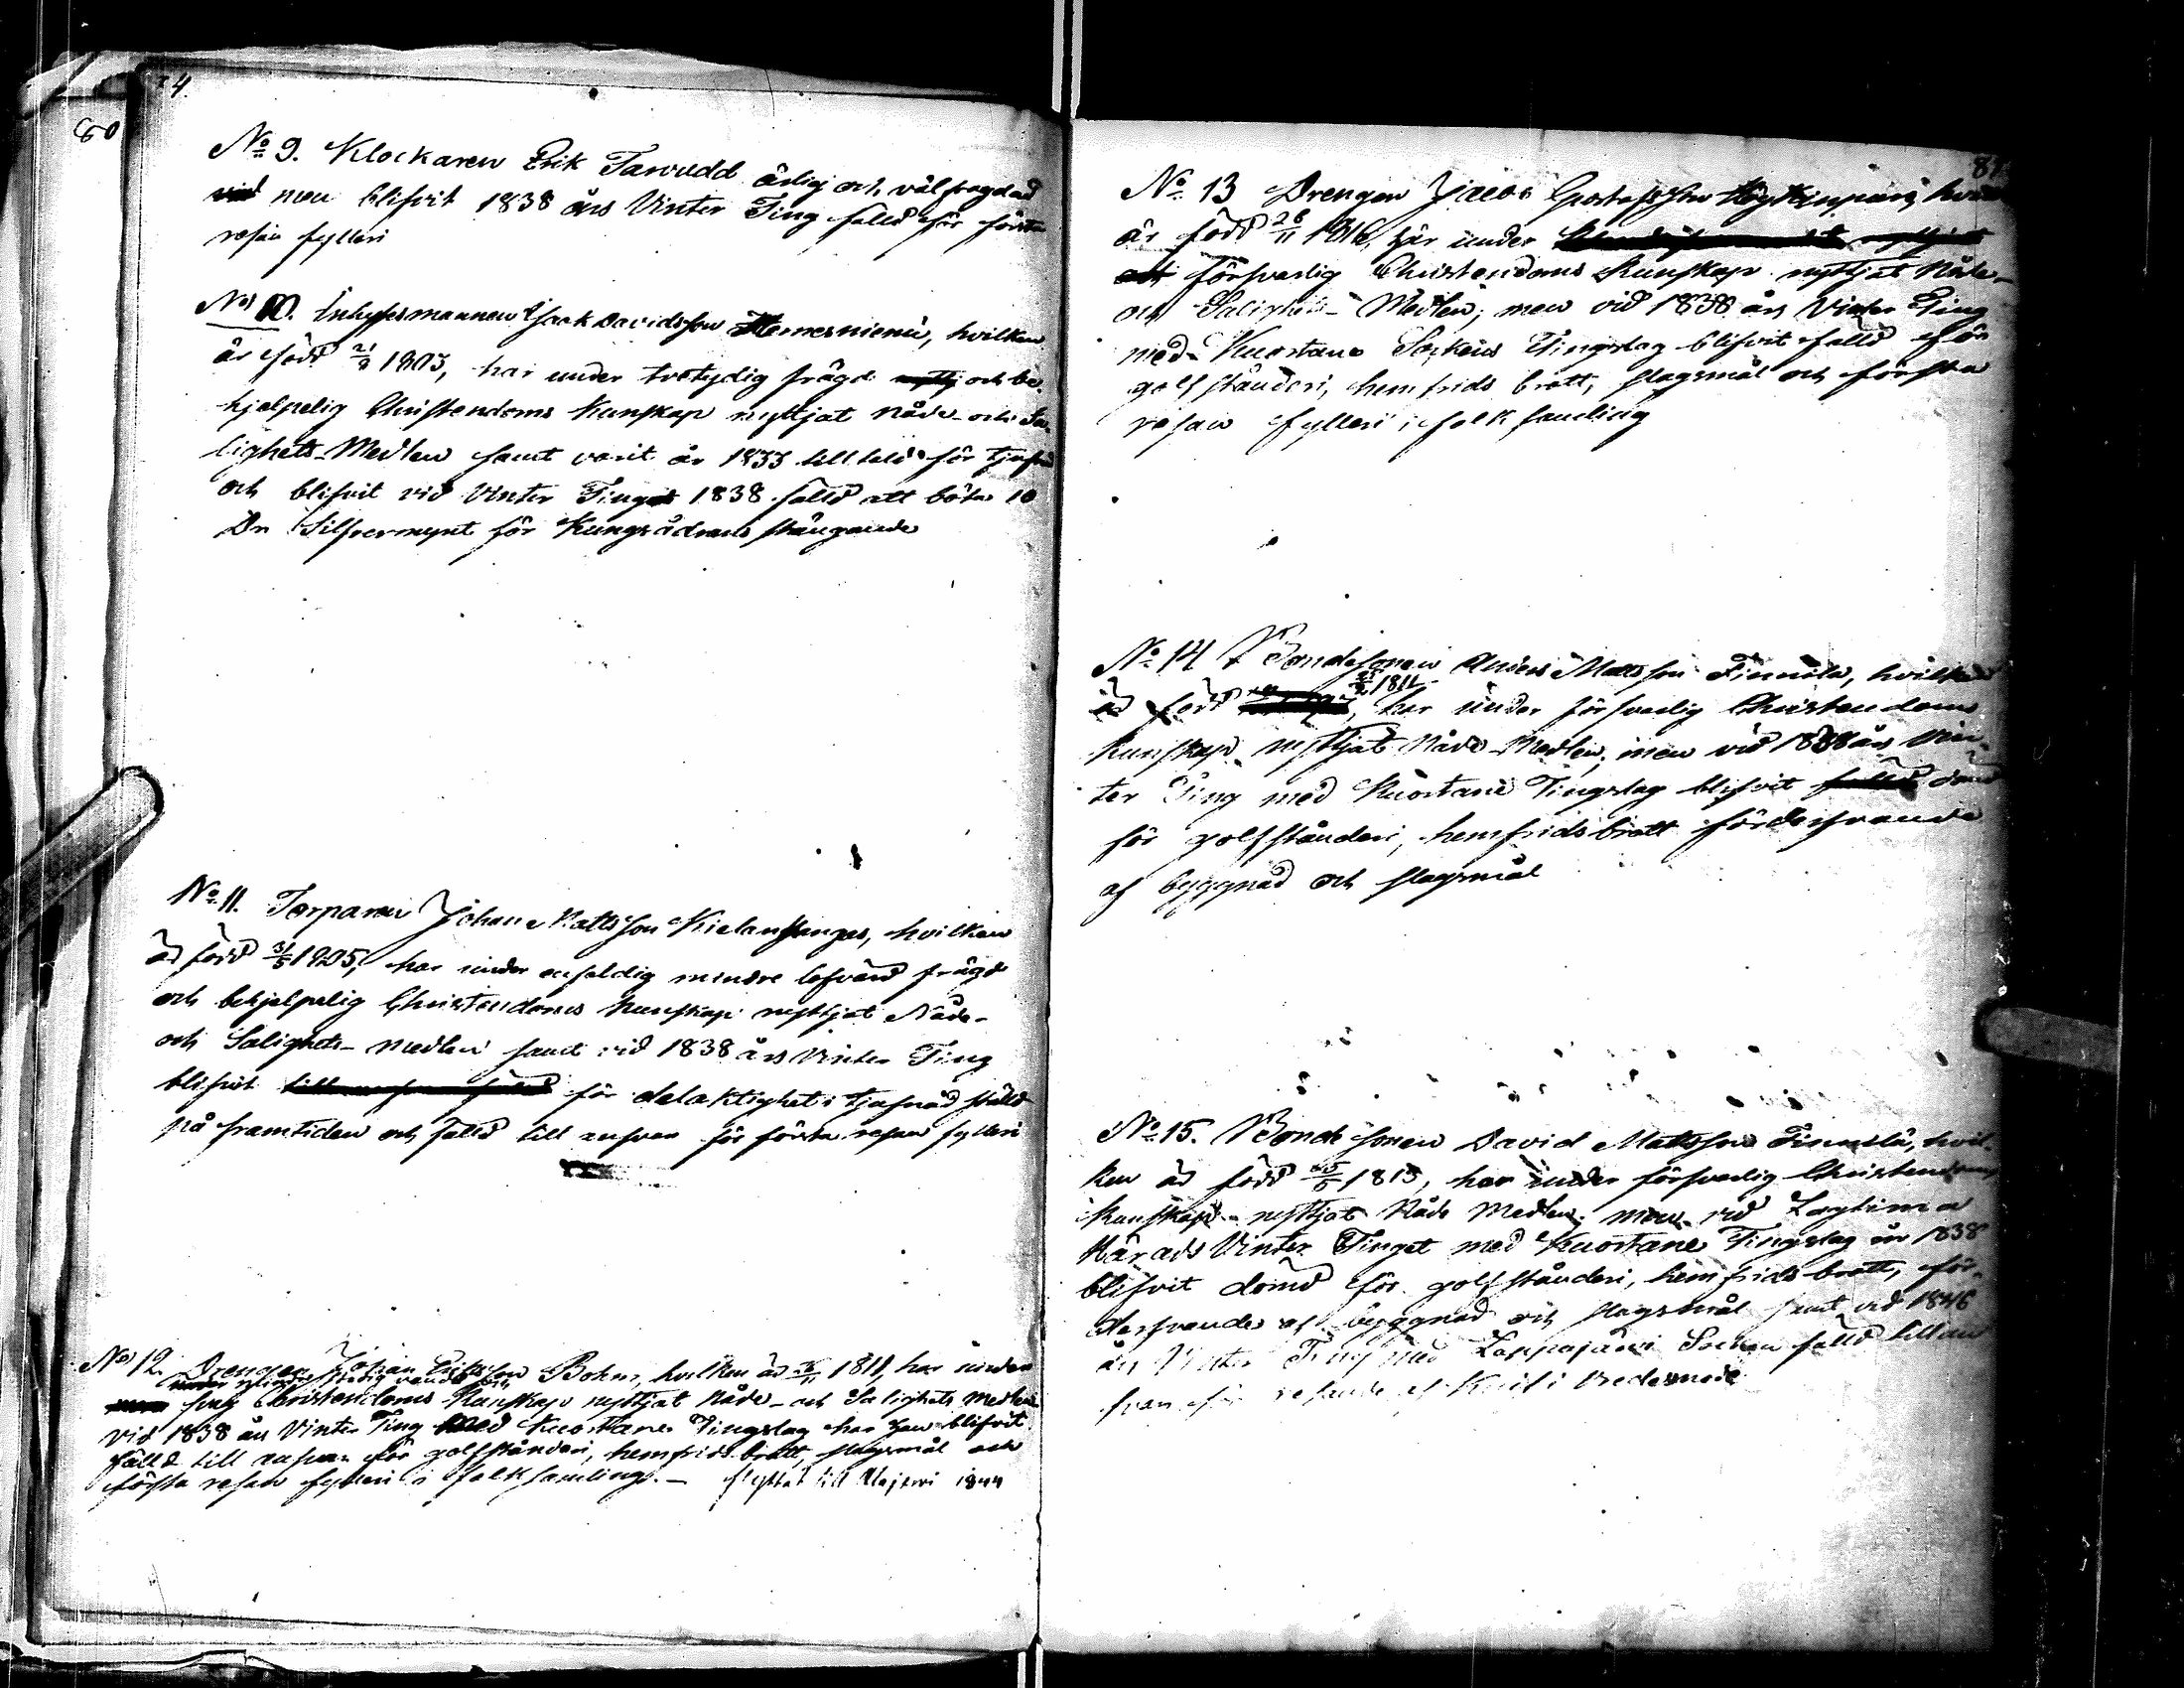 80
No 9. Klockaren Erik Tarvudd ärlig och välfrägdad
men blifvit 1838 års Vinter Ting fälld för första
resan fylleri
No 10. Inhysesmannen Isaak Davidsson Hernesniemi, hvilken
är född 21/9 1803, har under tvetydig frägd och be-
hjelpelig Christendoms Kunskap nyttjat Nåde- och Sa-
lighets-Medlen samt varit år 1833 tilltald för tjufnad
och blifvit vid Vinter Tinget 1838 fälld att böta 10
Dr Silfvermynt för Kungsådrans stängande
No 11. Torparen Johan Mattsson Kielanhangas, hvilken
är född 31/5 1805, har under mindre lofvärd frägd
och behjelpelig Christendoms Kunskap nyttjat Nåde-
och Salighets-medlen samt vid 1838 års Vinter Ting
blifvit för delaktighet i tjufnad ställd
på framtiden och fälld till ansvar för första resan fylleri
No 12. Drengen Johan Eriksson Bohm, hvilken är 1811, har under
svag Christendoms Kunskap nyttjat Nåde- och Salighets Medlen
vid 1838 års Vinter Ting med Kuortane Tingslag har han blifvit
fälld till ansvar för golfstånderi, hemfrids brott, slagsmål och
första resan fylleri i folksamling. - flyttat till Alajervi 1844
81
No 13 Drengen Jacob Gustafsson
är född 26/11 1816, har under
försvarlig Christendoms Kunskap nyttjat Nåde-
och Salighets-Medlen; men vid 1838 års Vinter Ting
med Kuortane Sockens Tingslag blifvit fälld för
golfstånderi, hemfrids brott, slagsmål och första
resan fylleri i folksamling
No 14 Bondesonen Anders Mattsson Finnilä, hvilken
är född 1811, har under försvarlig Christendoms
Kunskap nyttjat Nåde-Medlen; men vid 1838 års Vin-
ter Ting med Kuortane Tingslag blifvit fälld dömd
för golfstånderi, hemfridsbrott förderfvande
af byggnad och slagsmål
No 15. Bonde sonen David Mattsson Finnilä, hvil-
ken är född 1815, har under försvarlig Christendoms
Kunskap nyttjat Nåde Medlen; men vid Lagtima
Härads Vinter Tinget med Kuortane Tingslag år 1838
blifvit dömd för golfstånderi, hemfridsbrott, för-
derfvande af byggnad och slagsmål samt vid 1846
års Vinter Ting med Lappajärvi Socken fälld till an-
svar för af Knif i vredesmod